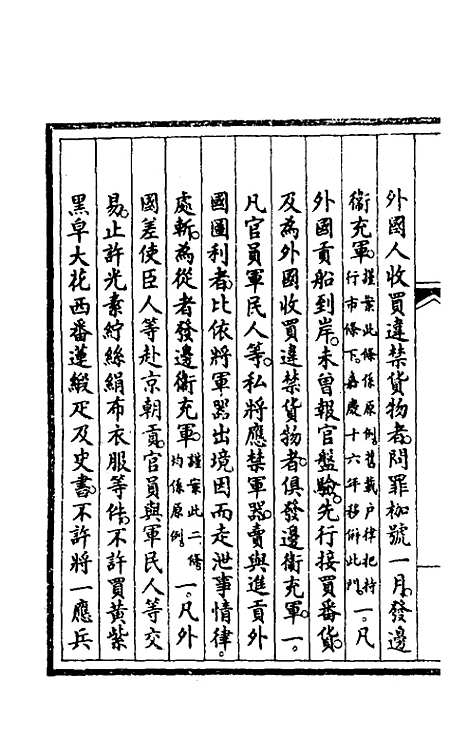 外國人收買違禁貨物者。問罪枷號一月。發邊
衞充軍。謹案此條係原例。舊載戶律把持行巿條下。嘉慶十六年移併此門。一。凡
外國貢船到岸。未曾報官盤驗。先行接買番貨。
及為外國收買違禁貨物者。俱發邊衞充軍。一。
凡官員軍民人等。私將應禁軍器。賣與進貢外
國圖利者。比依將軍器出境因而走泄事情律。
處斬。為從者發邊衞充軍。謹案此二條均係原例。一。凡外
國差使臣人等赴京朝貢。官員與軍民人等交
易。止許光素紵絲絹布衣服等件。不許買黃紫
黑皁大花西番蓮緞疋及史書。不許將一應兵